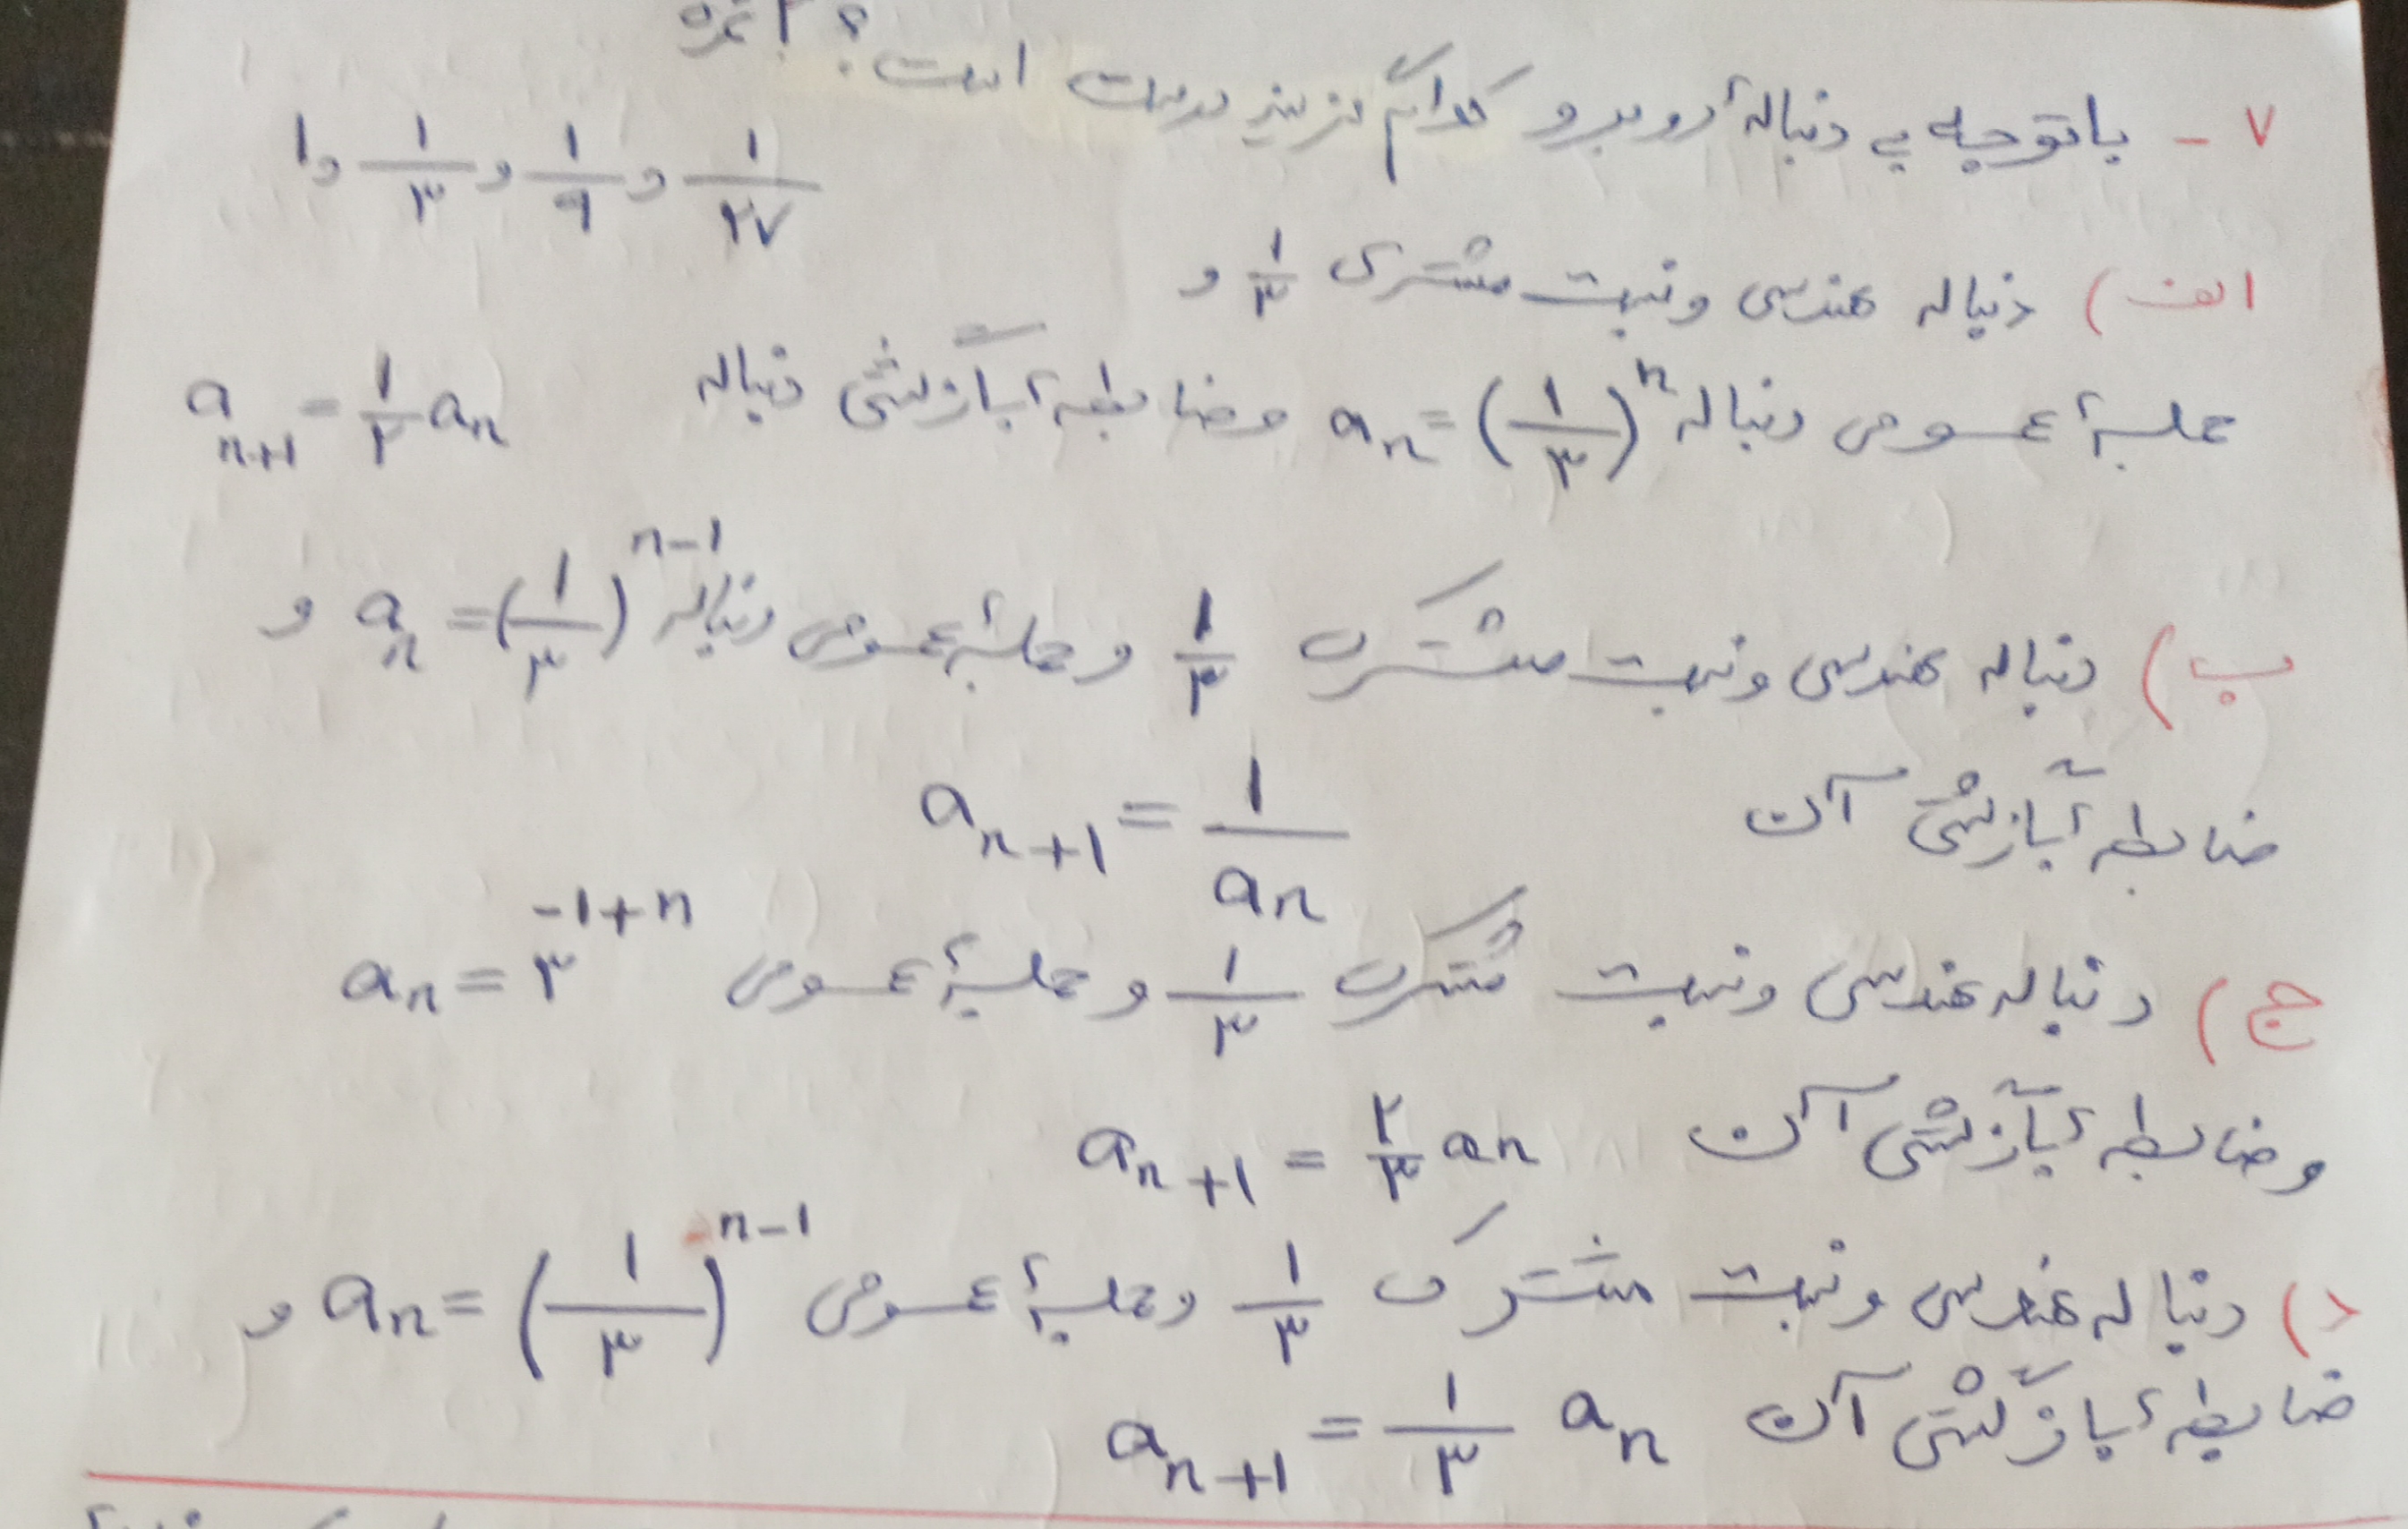 ۷ - باتوجه به دنبالهٔ روبرو کدام گزینه درست است؟ ۱ نمره
۱ و ۱/۳ و ۱/۹ و ۱/۲۷
الف) دنباله هندسی و نسبت مشترک ۱/۳ و
جملهٔ عمومی دنباله aₙ = (۱/۳)ⁿ و ضابطهٔ بازگشتی دنباله aₙ₊₁ = ۱/۲ aₙ
ب) دنباله هندسی و نسبت مشترک ۱/۳ و جملهٔ عمومی دنباله aₙ = (۱/۳)ⁿ⁻¹ و
ضابطهٔ بازگشتی آن aₙ₊₁ = ۱/aₙ
ج) دنباله هندسی و نسبت مشترک ۱/۳ و جملهٔ عمومی aₙ = ۳⁻¹⁺ⁿ
و ضابطهٔ بازگشتی آن aₙ₊₁ = ۲/۳ aₙ
د) دنباله هندسی و نسبت مشترک ۱/۳ و جملهٔ عمومی aₙ = (۱/۳)ⁿ⁻¹ و
ضابطهٔ بازگشتی آن aₙ₊₁ = ۱/۳ aₙ